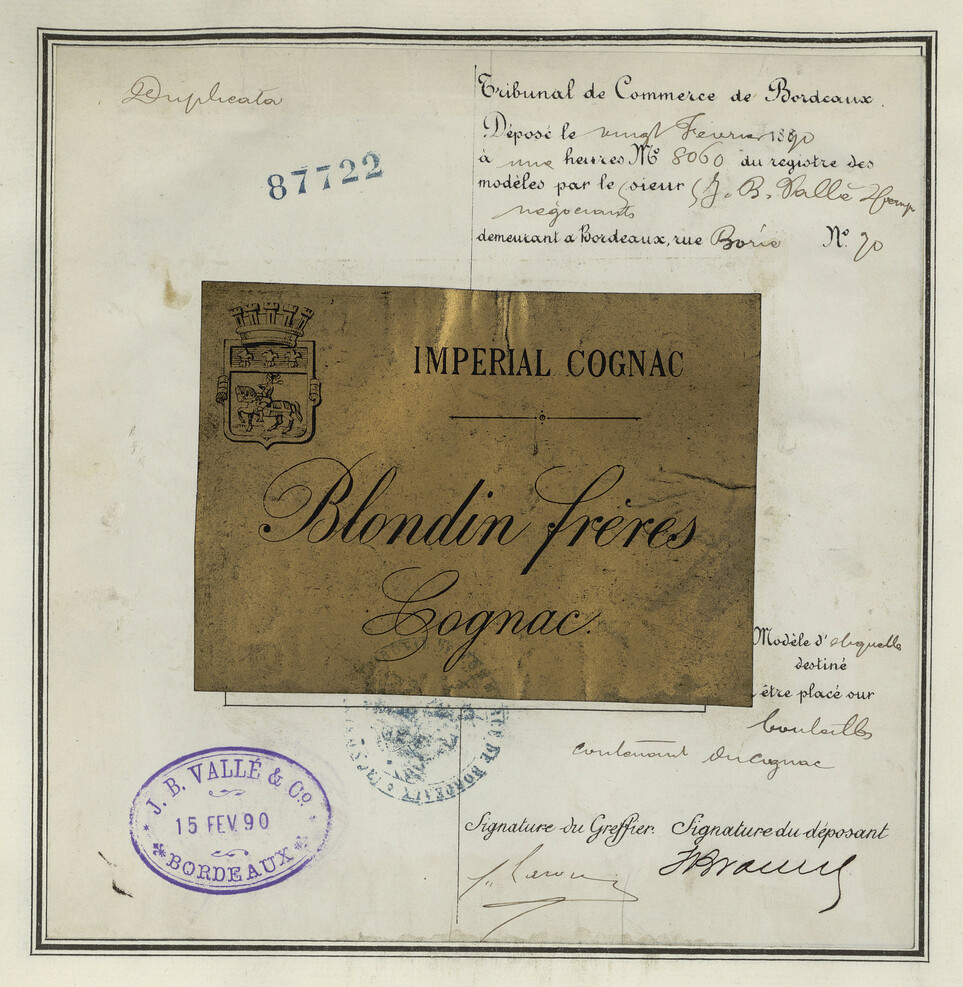 Duplicata
87722
Tribunal de Commerce de Bordeaux.
Déposé le vingt Fevrier 1890
à une heures No 8060 du registre des
modèles par le sieur J. B. Vallé & Comp
négociants
demeurant a Bordeaux, rue Borie No. 20
IMPERIAL COGNAC
Blondin frères
Cognac.
Modèle d'etiquette
destiné
être placé sur
bouteilles
contenant du cognac
DE BORDEAUX
J. B. VALLÉ & Co.
15 FEV. 90
BORDEAUX
Signature du Greffier. Signature du déposant